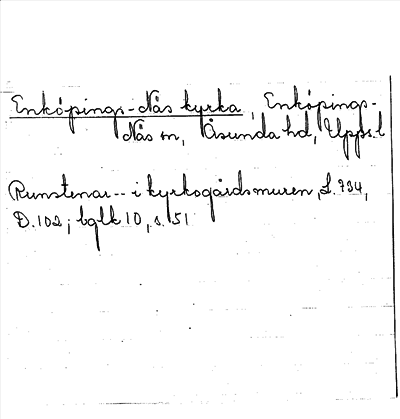 Enköpings-Näs kyrka, Enköpings-
Näs sn, Åsunda hd, Upps. l
Runstenar -- i kyrkogårdsmuren, L. 734,
D. 102; bglk 10, s. 51